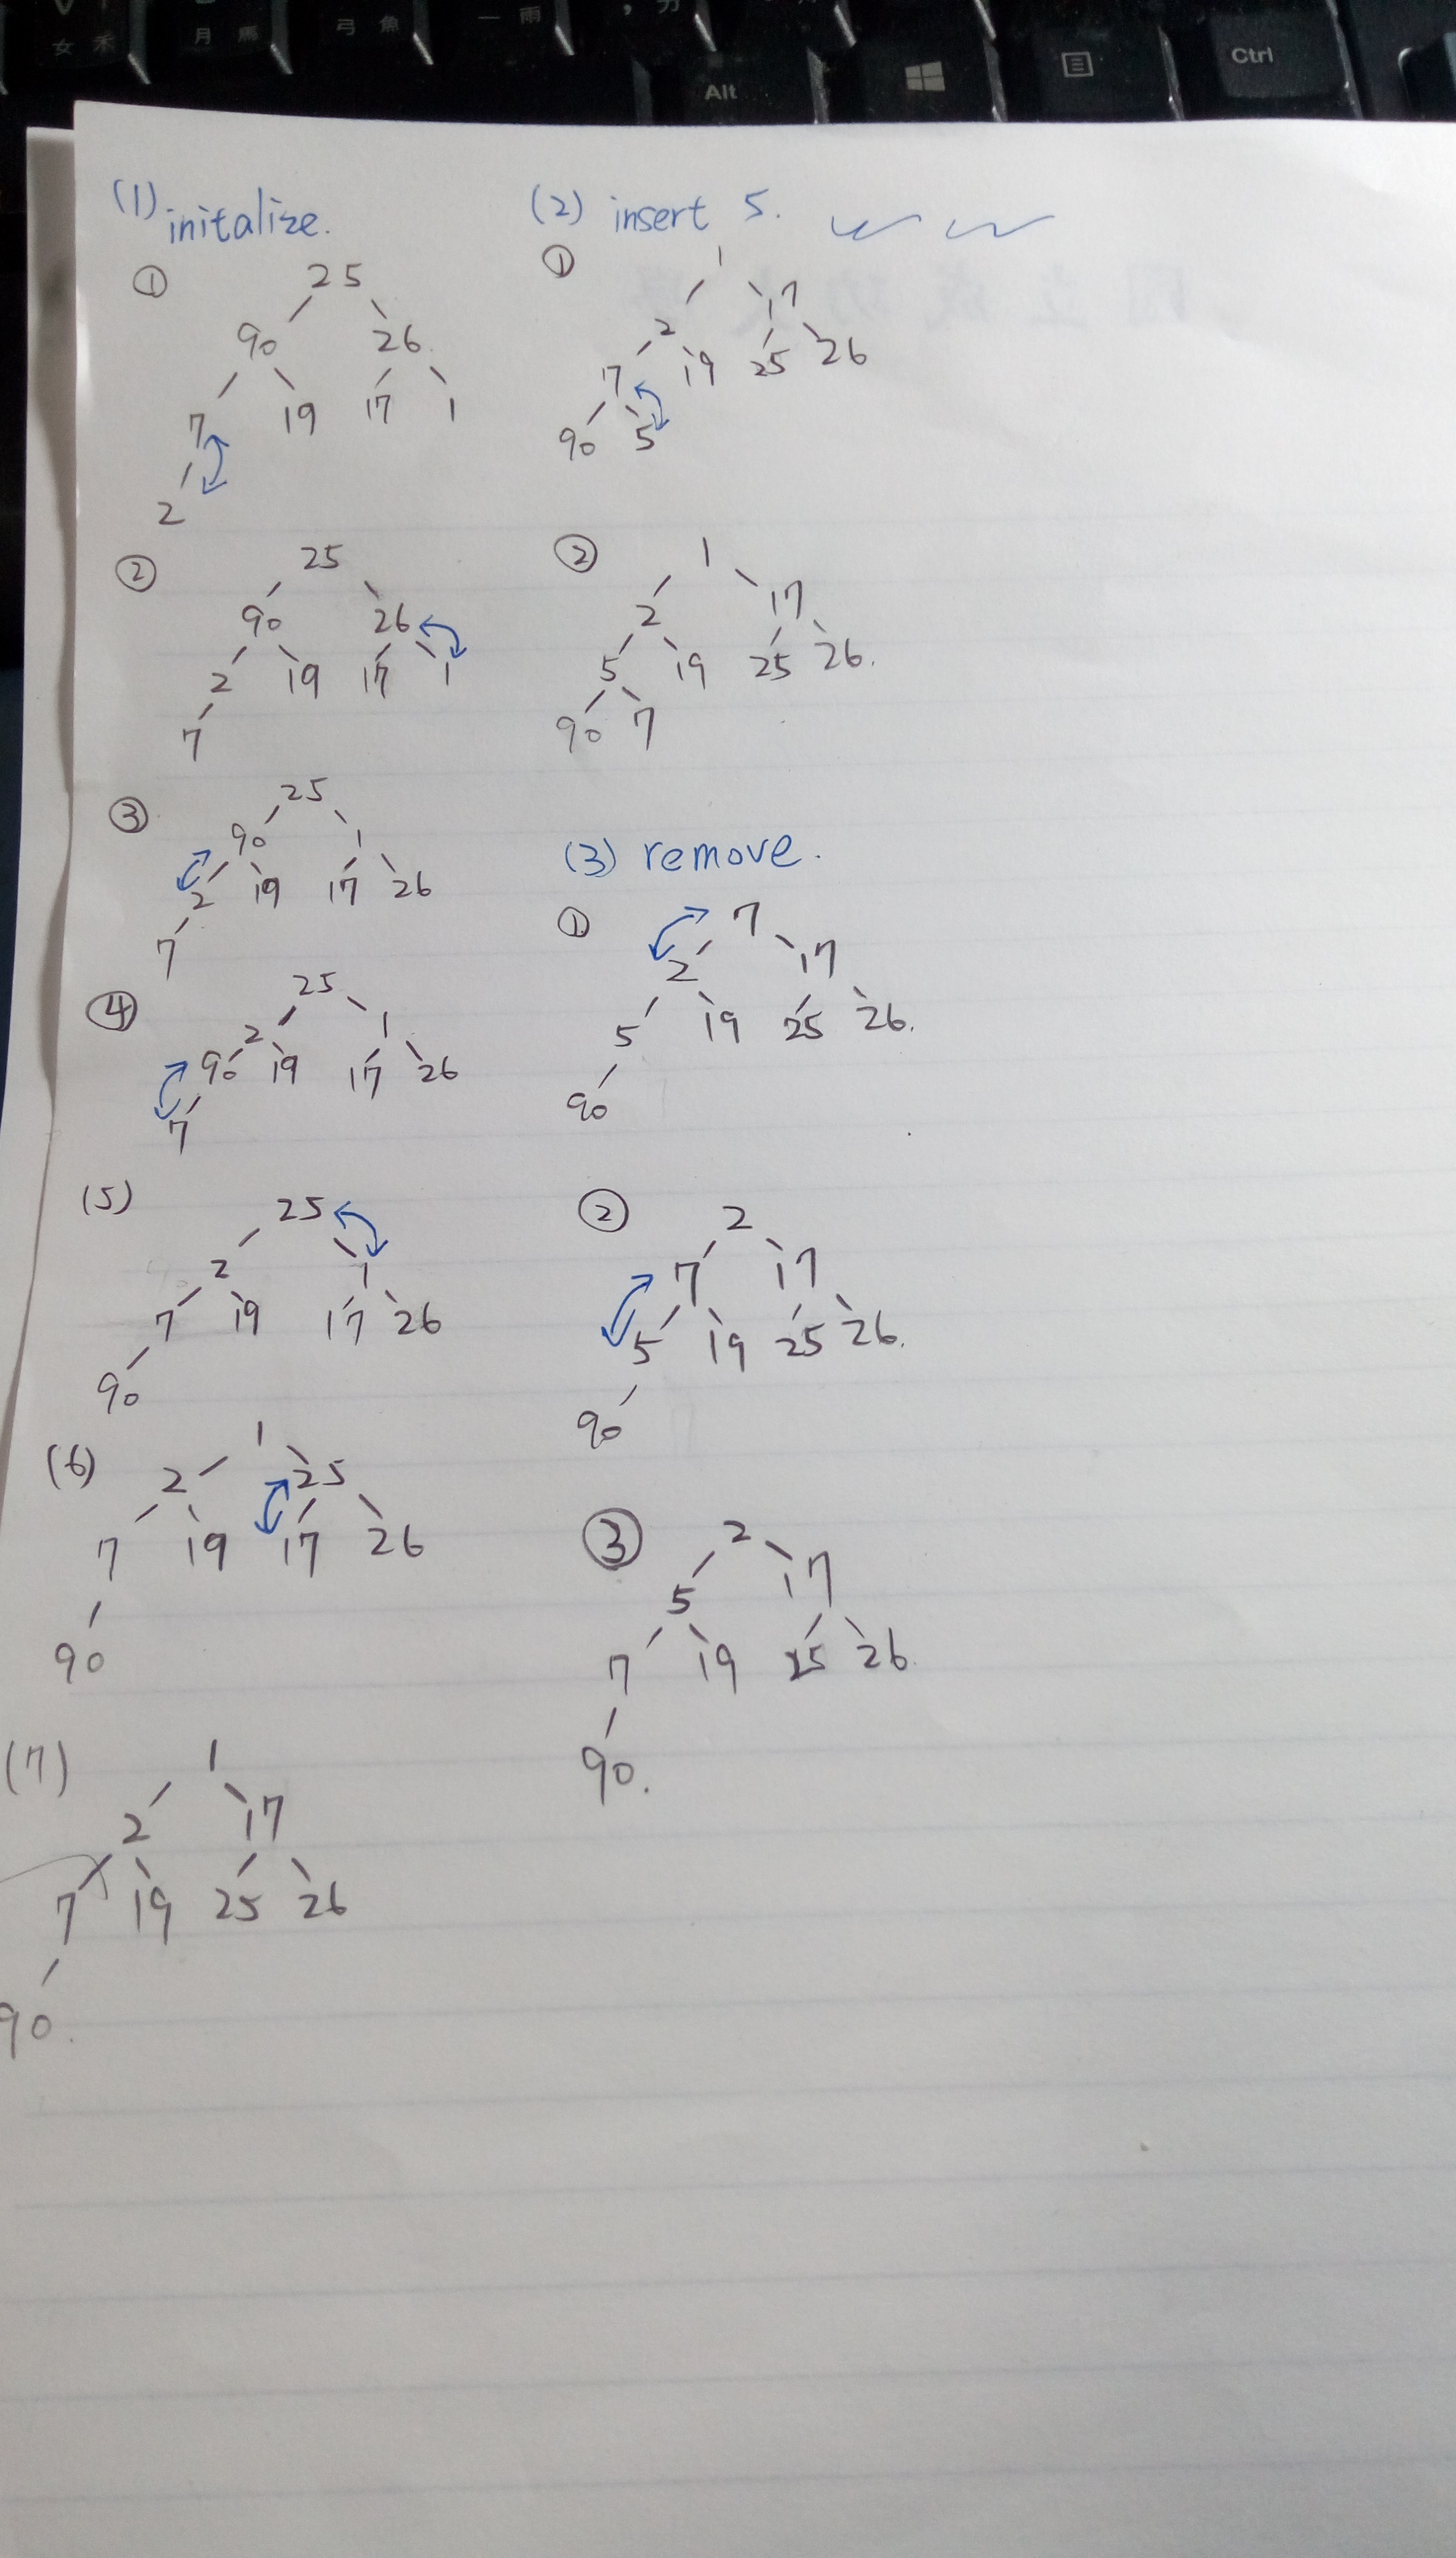 女 禾
月 馬
弓 魚
一 雨
Alt
Ctrl
(1) initalize.
① 25
90 26
7 19 17 1
2
② 25
90 26
2 19 17 1
7
③ 25
90 1
2 19 17 26
7
④ 25
2 1
90 19 17 26
7
(5) 25
2 1
7 19 17 26
90
(6) 1
2 25
7 19 17 26
90
(7) 1
2 17
7 19 25 26
90.
(2) insert 5.
① 1
2 17
7 19 25 26
90 5
② 1
2 17
5 19 25 26.
90 7
(3) remove.
① 7
2 17
5 19 25 26.
90
② 2
7 17
5 19 25 26.
90
③ 2
5 17
7 19 25 26.
90.